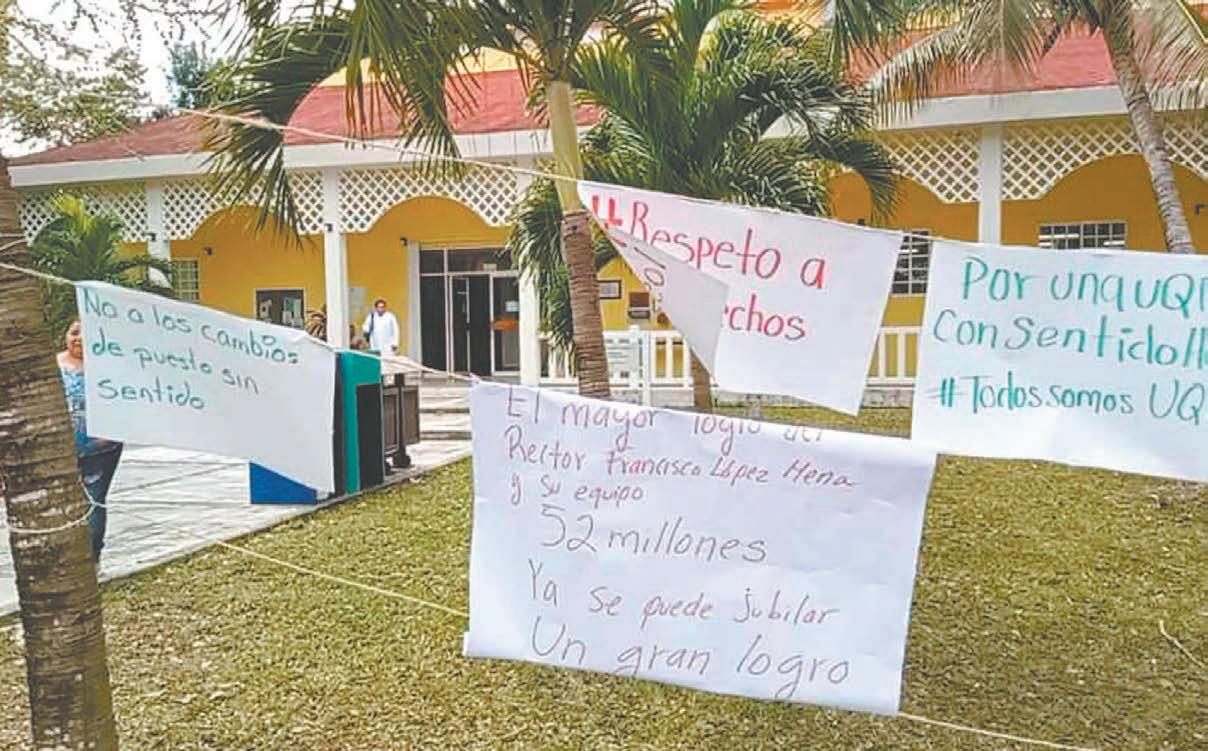 No a los cambios
de puesto sin
Sentido
#Respeto a
echos
Por una UQ
Consentido
#Todossomos UQ
El mayor logro del
Rector Francisco López Mena
y su equipo
52 millones
Ya se puede jubilar
Un gran logro